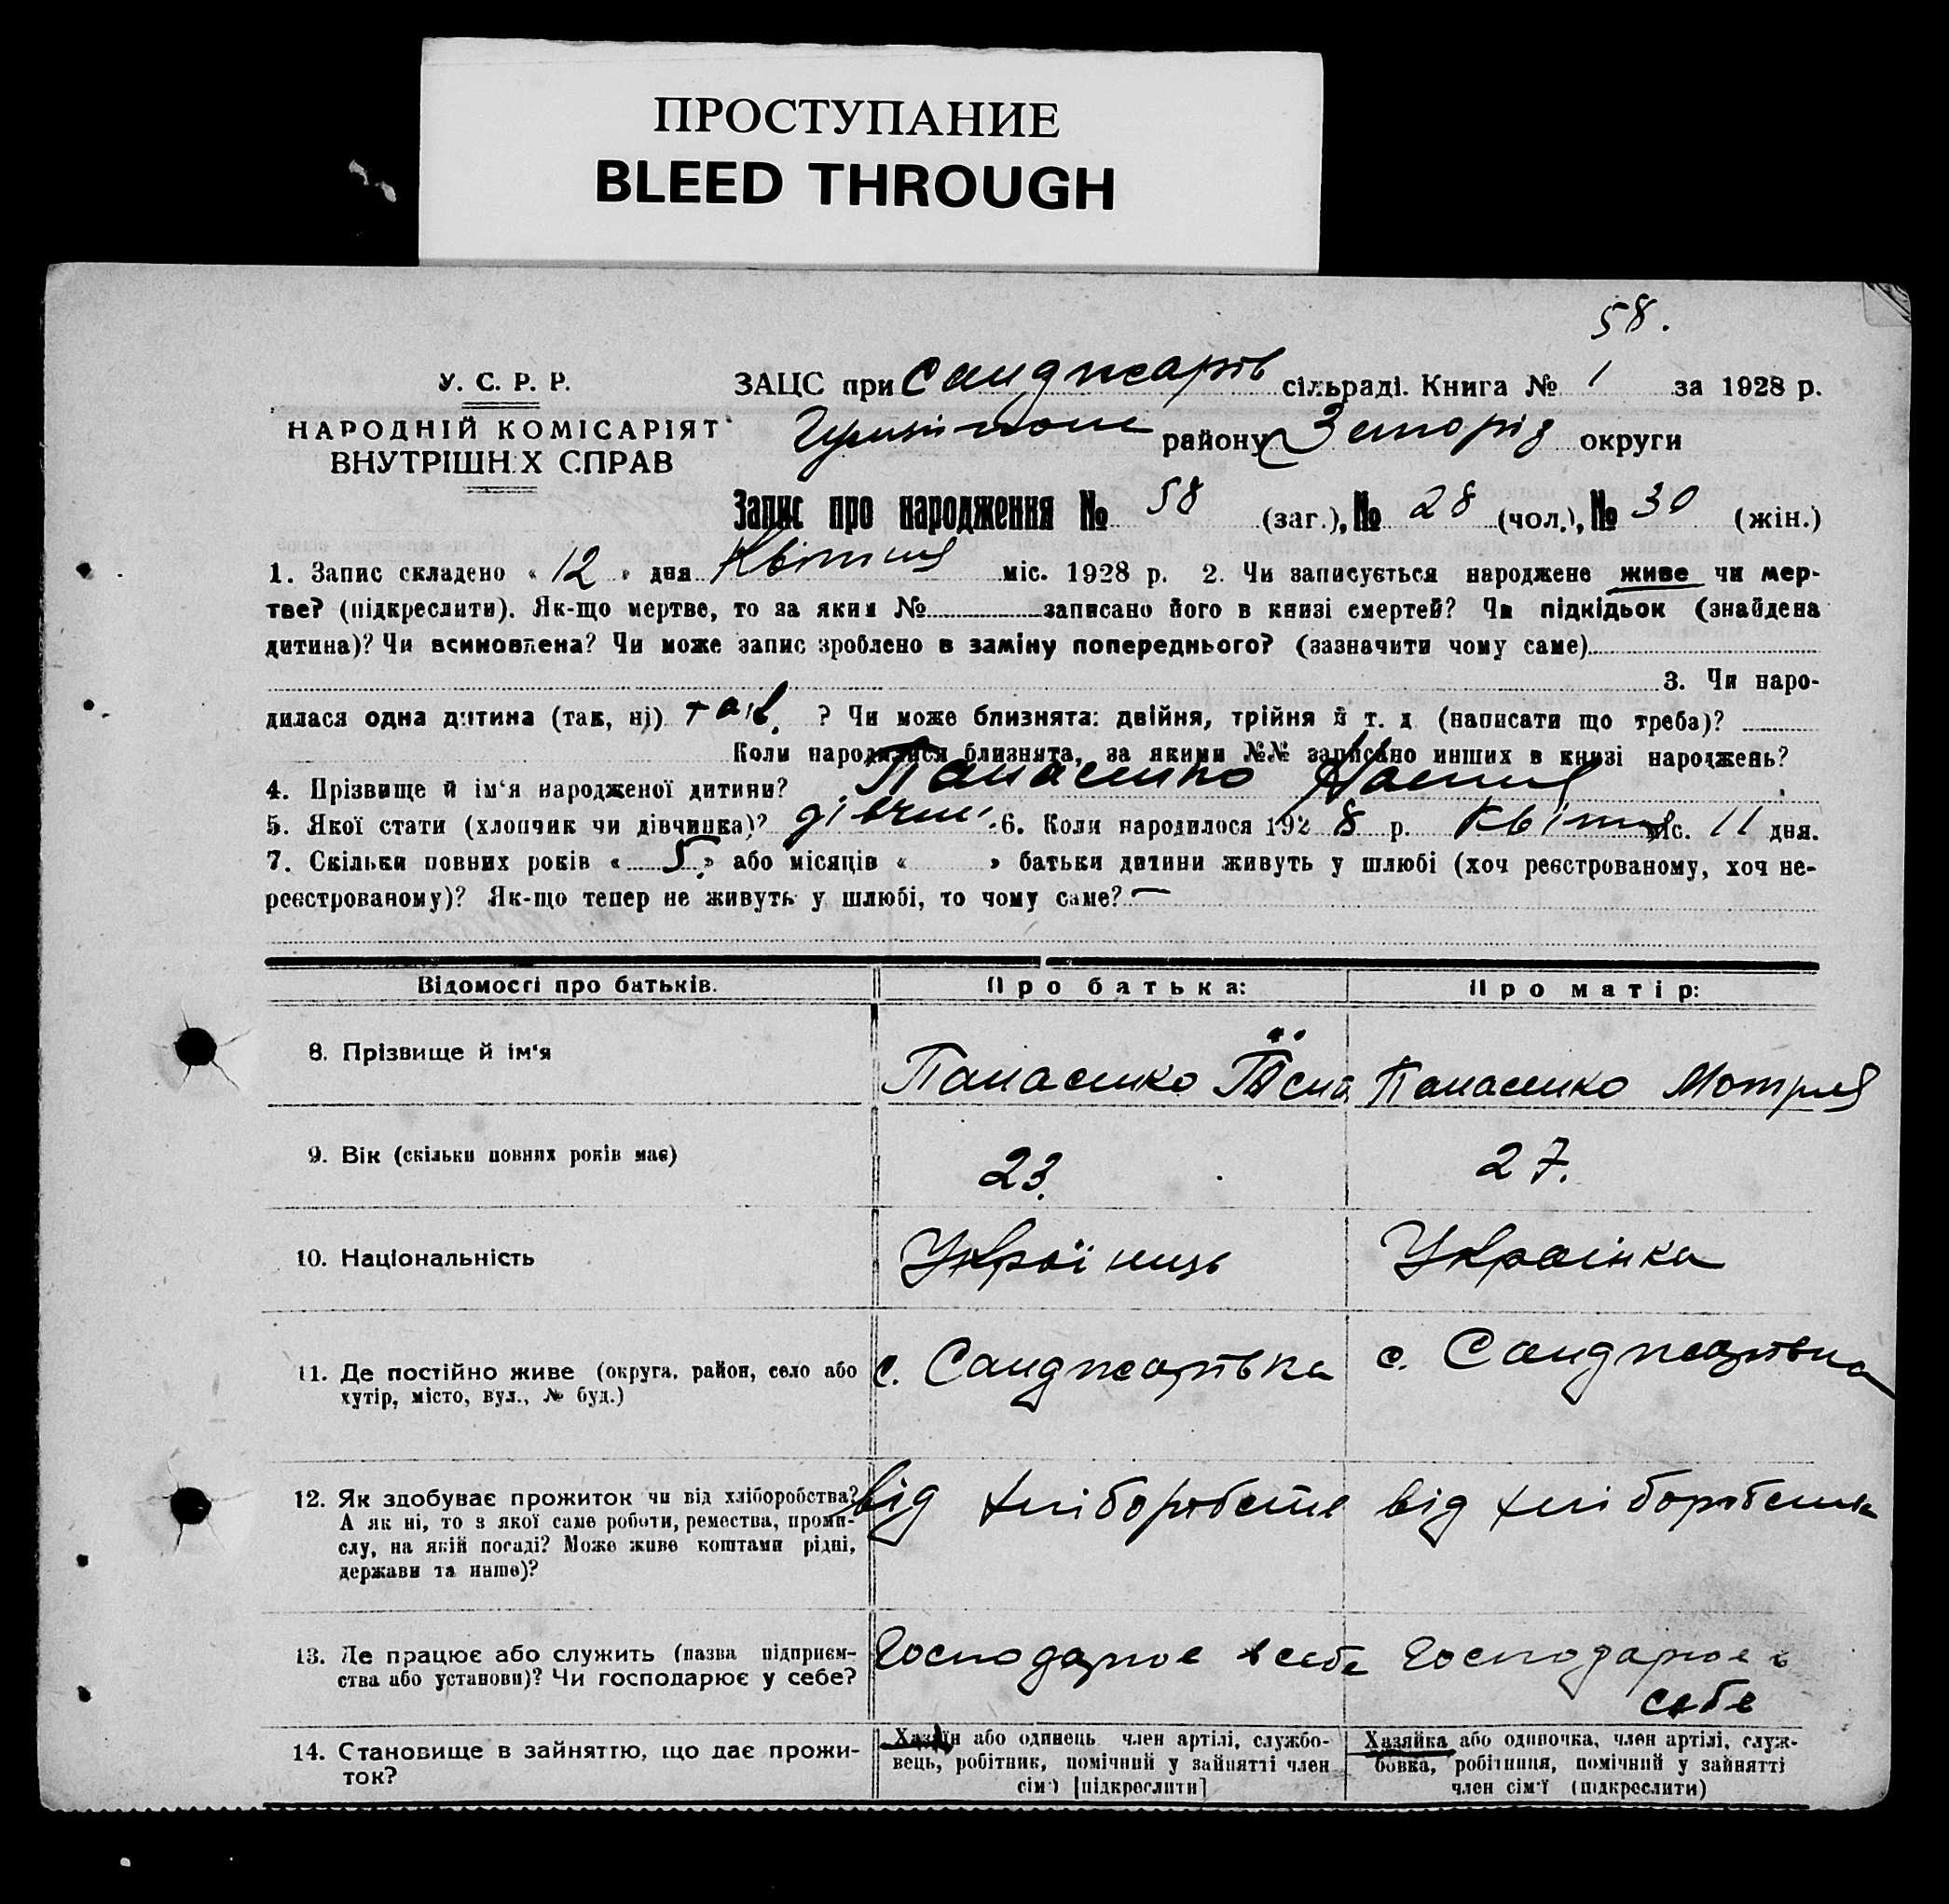 ПРОСТУПАНИЕ
BLEED THROUGH
58.
У. С. Р. Р.
НАРОДНІЙ КОМІСАРІЯТ
ВНУТРІШНІХ СПРАВ
ЗАЦС при Санджарів сільраді. Книга № 1 за 1928 р.
району Запоріз округи
Запис про народження № 58 (заг.), № 28 (чол.), № 30 (жін.)
1. Запис складено « 12 » дня Квітня міс. 1928 р. 2. Чи записується народжене живе чи мер-
тве? (підкреслити). Як-що мертве, то за яким № записано його в книзі смертей? Чи підкідьок (знайдена
дитина)? Чи всиновлена? Чи може запис зроблено в заміну попереднього? (зазначити чому саме)
3. Чи наро-
дилася одна дитина (так, ні) так ? Чи може близнята: двійня, трійня й т. д (написати що треба)?
Коли народилися близнята, за якими №№ записано инших в книзі народжень?
4. Прізвище й ім'я народженої дитини? Панасенко
5. Якої стати (хлопчик чи дівчинка)? дівчин. 6. Коли народилося 1928 р. Квітня міс. 11 дня.
7. Скільки повних років « 5 » або місяців « » батьки дитини живуть у шлюбі (хоч реєстрованому, хоч не-
реєстрованому)? Як-що тепер не живуть у шлюбі, то чому саме? —
Відомості про батьків.
Про батька:
Про матір:
8. Прізвище й ім'я
Панасенко
Панасенко Мотря
9. Вік (скільки повних років має)
23.
27.
10. Національність
Українць
Украінка
11. Де постійно живе (округа, район, село або
хутір, місто, вул., № буд.)
с. Санджарівка
с. Санджарівка
12. Як здобуває прожиток чи від хліборобства?
А як ні, то з якої саме роботи, ремества, проми-
слу, на якій посаді? Може живе коштами рідні,
держави та инше)?
від хліборобства
від хліборобства
13. Де працює або служить (назва підприєм-
ства або установи)? Чи господарює у себе?
Господарює в себе
Господарює в
себе
14. Становище в зайняттю, що дає прожи-
ток?
Хазяїн або одинець член артілі, службо-
вець, робітник, помічний у зайнятті член
сім'ї [підкреслити]
Хазяйка або одиночка, член артілі, служ-
бовка, робітниця, помічний у зайнятті
член сім'ї (підкреслити)